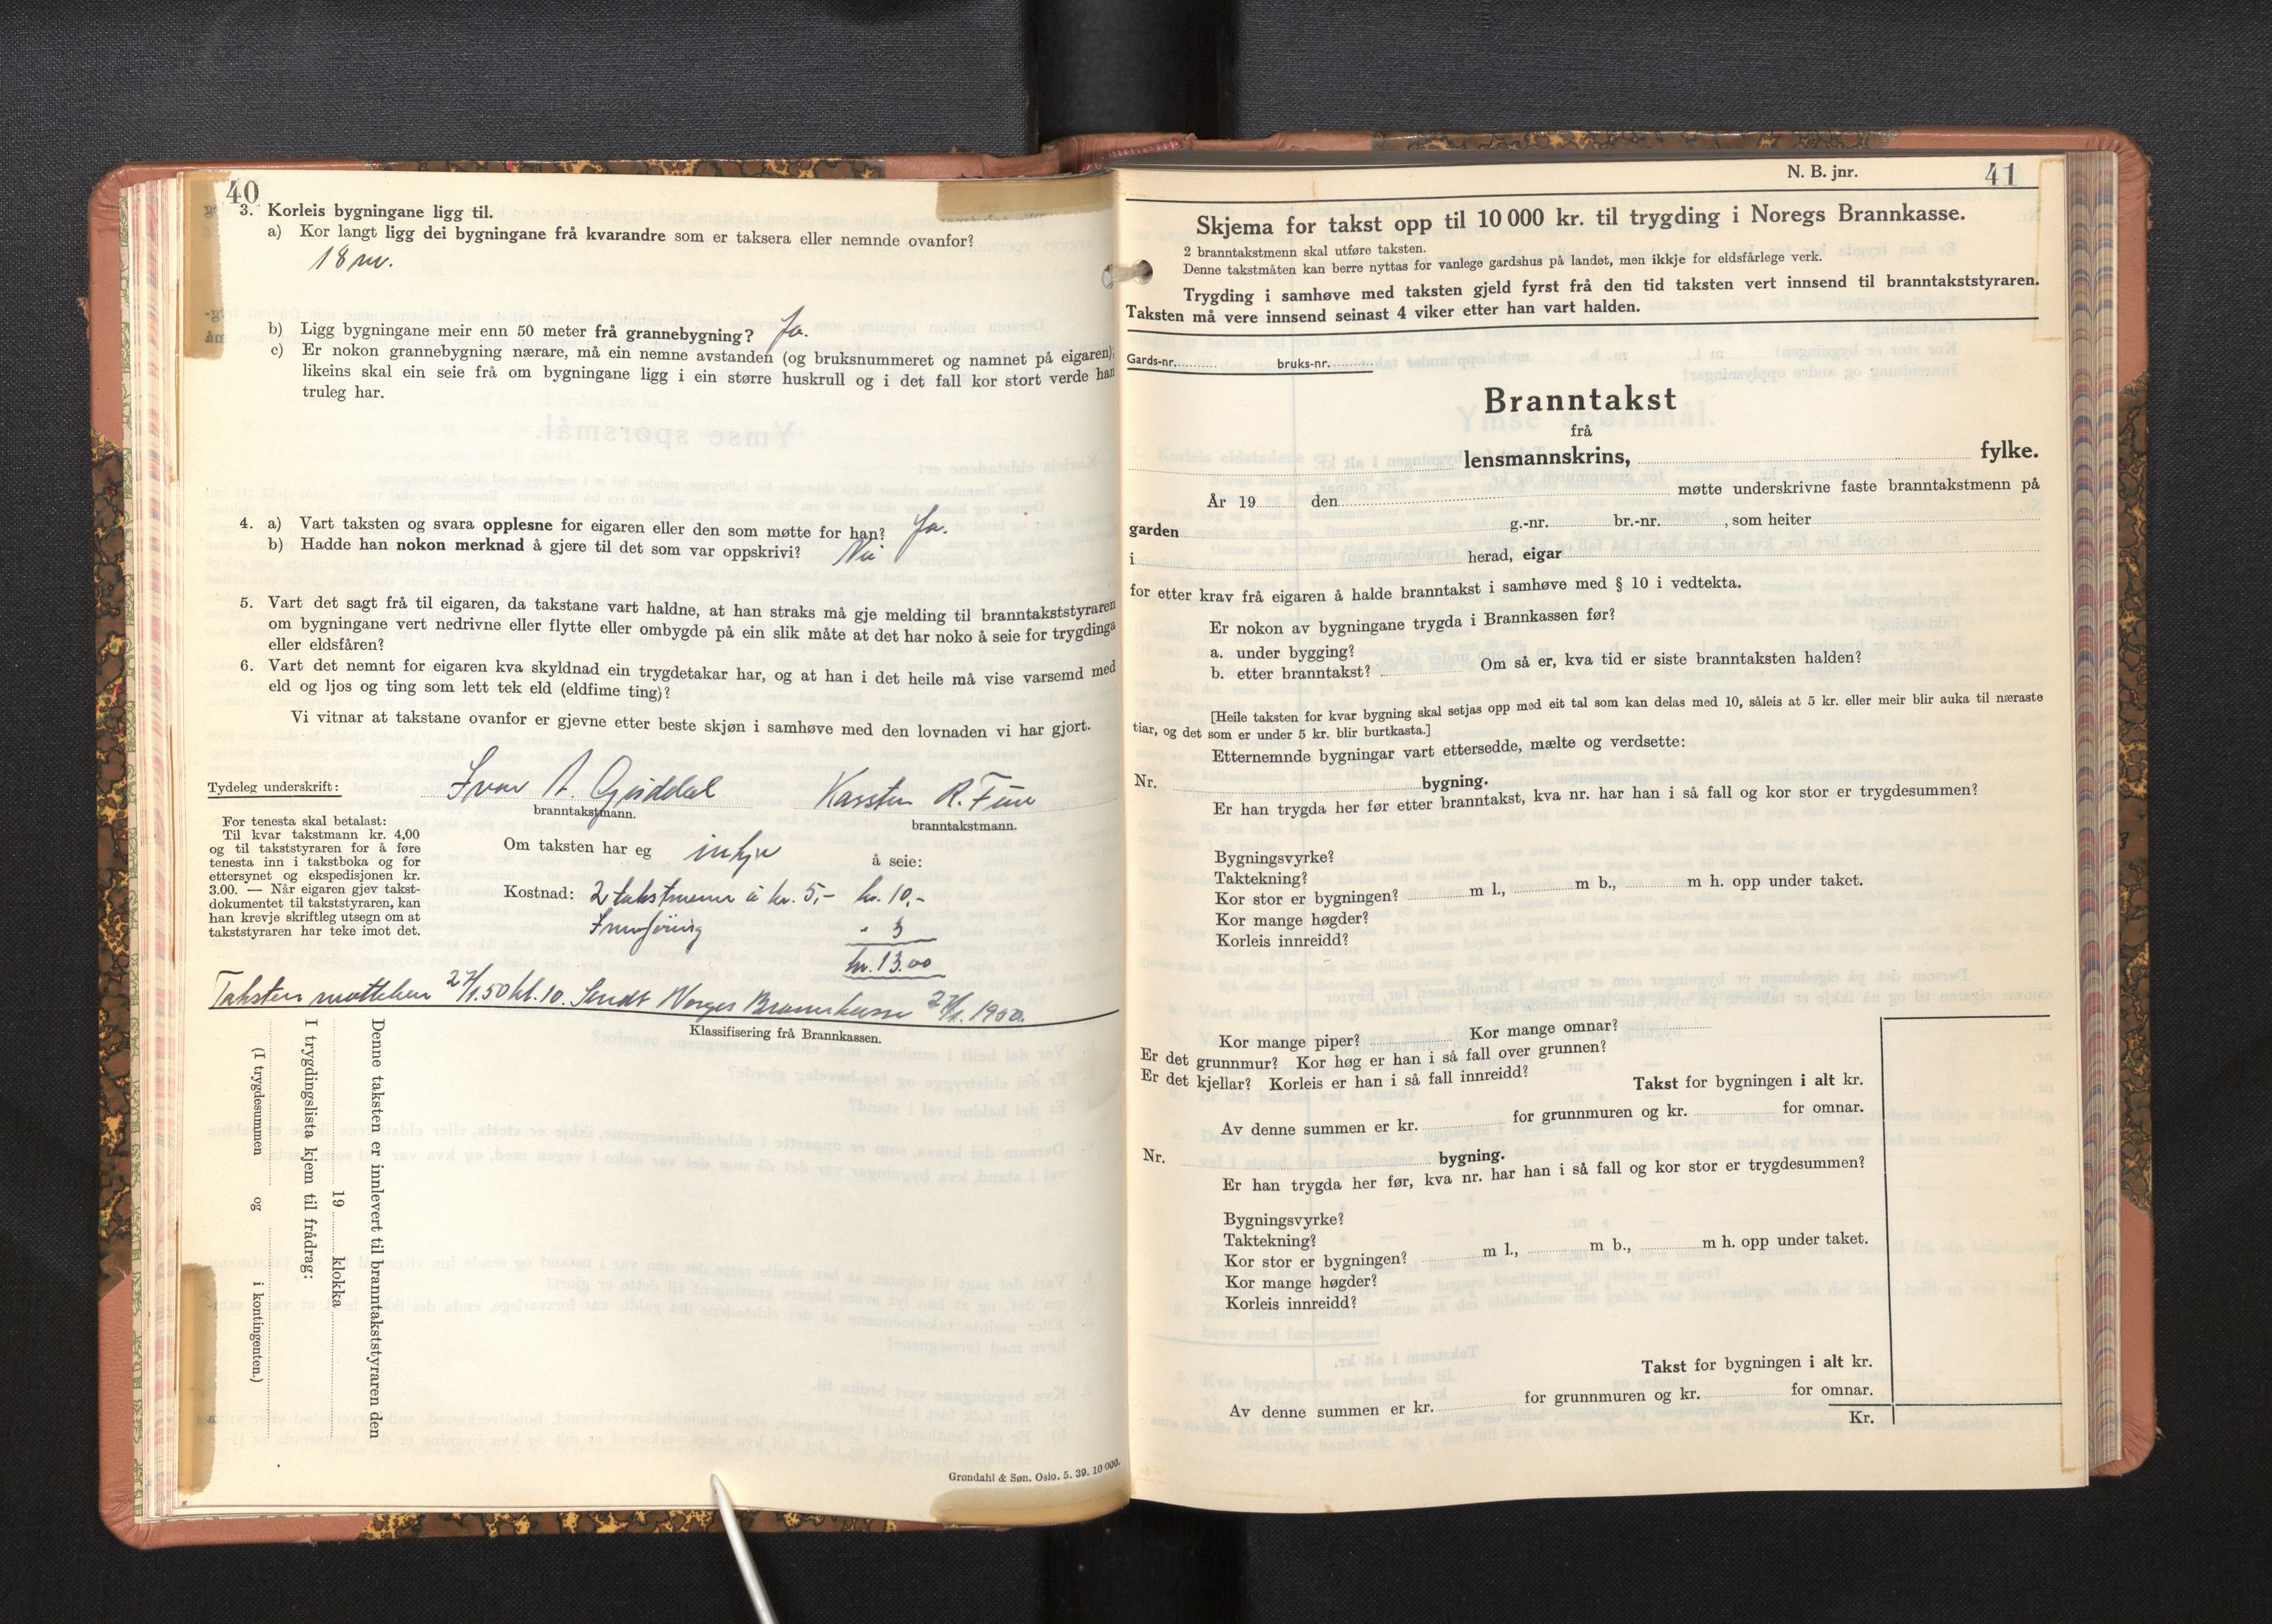 40
3. Korleis bygningane ligg til.
a) Kor langt ligg dei bygningane frå kvarandre som er taksera eller nemnde ovanfor?
18 m.
b) Ligg bygningane meir enn 50 meter frå grannebygning? Ja.
c) Er nokon grannebygning nærare, må ein nemne avstanden (og bruksnummeret og namnet på eigaren);
likeins skal ein seie frå om bygningane ligg i ein større huskrull og i det fall kor stort verde han
truleg har.
4. a) Vart taksten og svara opplesne for eigaren eller den som møtte for han? Ja.
b) Hadde han nokon merknad å gjere til det som var oppskrivi? Nei
5. Vart det sagt frå til eigaren, da takstane vart haldne, at han straks må gje melding til branntakststyraren
om bygningane vert nedrivne eller flytte eller ombygde på ein slik måte at det har noko å seie for trygdinga
eller eldsfåren?
6. Vart det nemnt for eigaren kva skyldnad ein trygdetakar har, og at han i det heile må vise varsemd med
eld og ljos og ting som lett tek eld (eldfime ting)?
Vi vitnar at takstane ovanfor er gjevne etter beste skjøn i samhøve med den lovnaden vi har gjort.
Tydeleg underskrift: Ivar A. Karsten R.
branntakstmann. branntakstmann.
For tenesta skal betalast:
Til kvar takstmann kr. 4,00
og til takststyraren for å føre
tenesta inn i takstboka og for
ettersynet og ekspedisjonen kr.
3.00. — Når eigaren gjev takst-
dokumentet til takststyraren, kan
han krevje skriftleg utsegn om at
takststyraren har teke imot det.
Om taksten har eg inkje å seie:
Kostnad: 2 takstmenn à kr. 5,- kr. 10,-
Innføring " 3
kr. 13.00
Taksten motteken 27/1.50 kl. 10. Sendt Norges Brannkasse 27/1. 1950.
Klassifisering frå Brannkassen.
Denne taksten er innlevert til branntakststyraren den
19 klokka
I trygdingslista kjem til frådrag:
(I trygdesummen og i kontingenten.)
Grøndahl & Søn. Oslo. 5. 39. 10 000.
N. B. jnr. 41
Skjema for takst opp til 10 000 kr. til trygding i Noregs Brannkasse.
2 branntakstmenn skal utføre taksten.
Denne takstmåten kan berre nyttas for vanlege gardshus på landet, men ikkje for eldsfårlege verk.
Trygding i samhøve med taksten gjeld fyrst frå den tid taksten vert innsend til branntakststyraren.
Taksten må vere innsend seinast 4 viker etter han vart halden.
Gards-nr. bruks-nr.
Branntakst
frå
lensmannskrins, fylke.
År 19 den møtte underskrivne faste branntakstmenn på
garden g.-nr. br.-nr. , som heiter
i herad, eigar
for etter krav frå eigaren å halde branntakst i samhøve med § 10 i vedtekta.
Er nokon av bygningane trygda i Brannkassen før?
a. under bygging?
b. etter branntakst? Om så er, kva tid er siste branntaksten halden?
[Heile taksten for kvar bygning skal setjas opp med eit tal som kan delas med 10, såleis at 5 kr. eller meir blir auka til næraste
tiar, og det som er under 5 kr. blir burtkasta.]
Etternemnde bygningar vart ettersedde, mælte og verdsette:
Nr. bygning.
Er han trygda her før etter branntakst, kva nr. har han i så fall og kor stor er trygdesummen?
Bygningsvyrke?
Taktekning?
Kor stor er bygningen? m l., m b., m h. opp under taket.
Kor mange høgder?
Korleis innreidd?
Kor mange piper? Kor mange omnar?
Er det grunnmur? Kor høg er han i så fall over grunnen?
Er det kjellar? Korleis er han i så fall innreidd?
Takst for bygningen i alt kr.
Av denne summen er kr. for grunnmuren og kr. for omnar.
Nr. bygning.
Er han trygda her før, kva nr. har han i så fall og kor stor er trygdesummen?
Bygningsvyrke?
Taktekning?
Kor stor er bygningen? m l., m b., m h. opp under taket.
Kor mange høgder?
Korleis innreidd?
Takst for bygningen i alt kr.
Av denne summen er kr. for grunnmuren og kr. for omnar.
Kr.